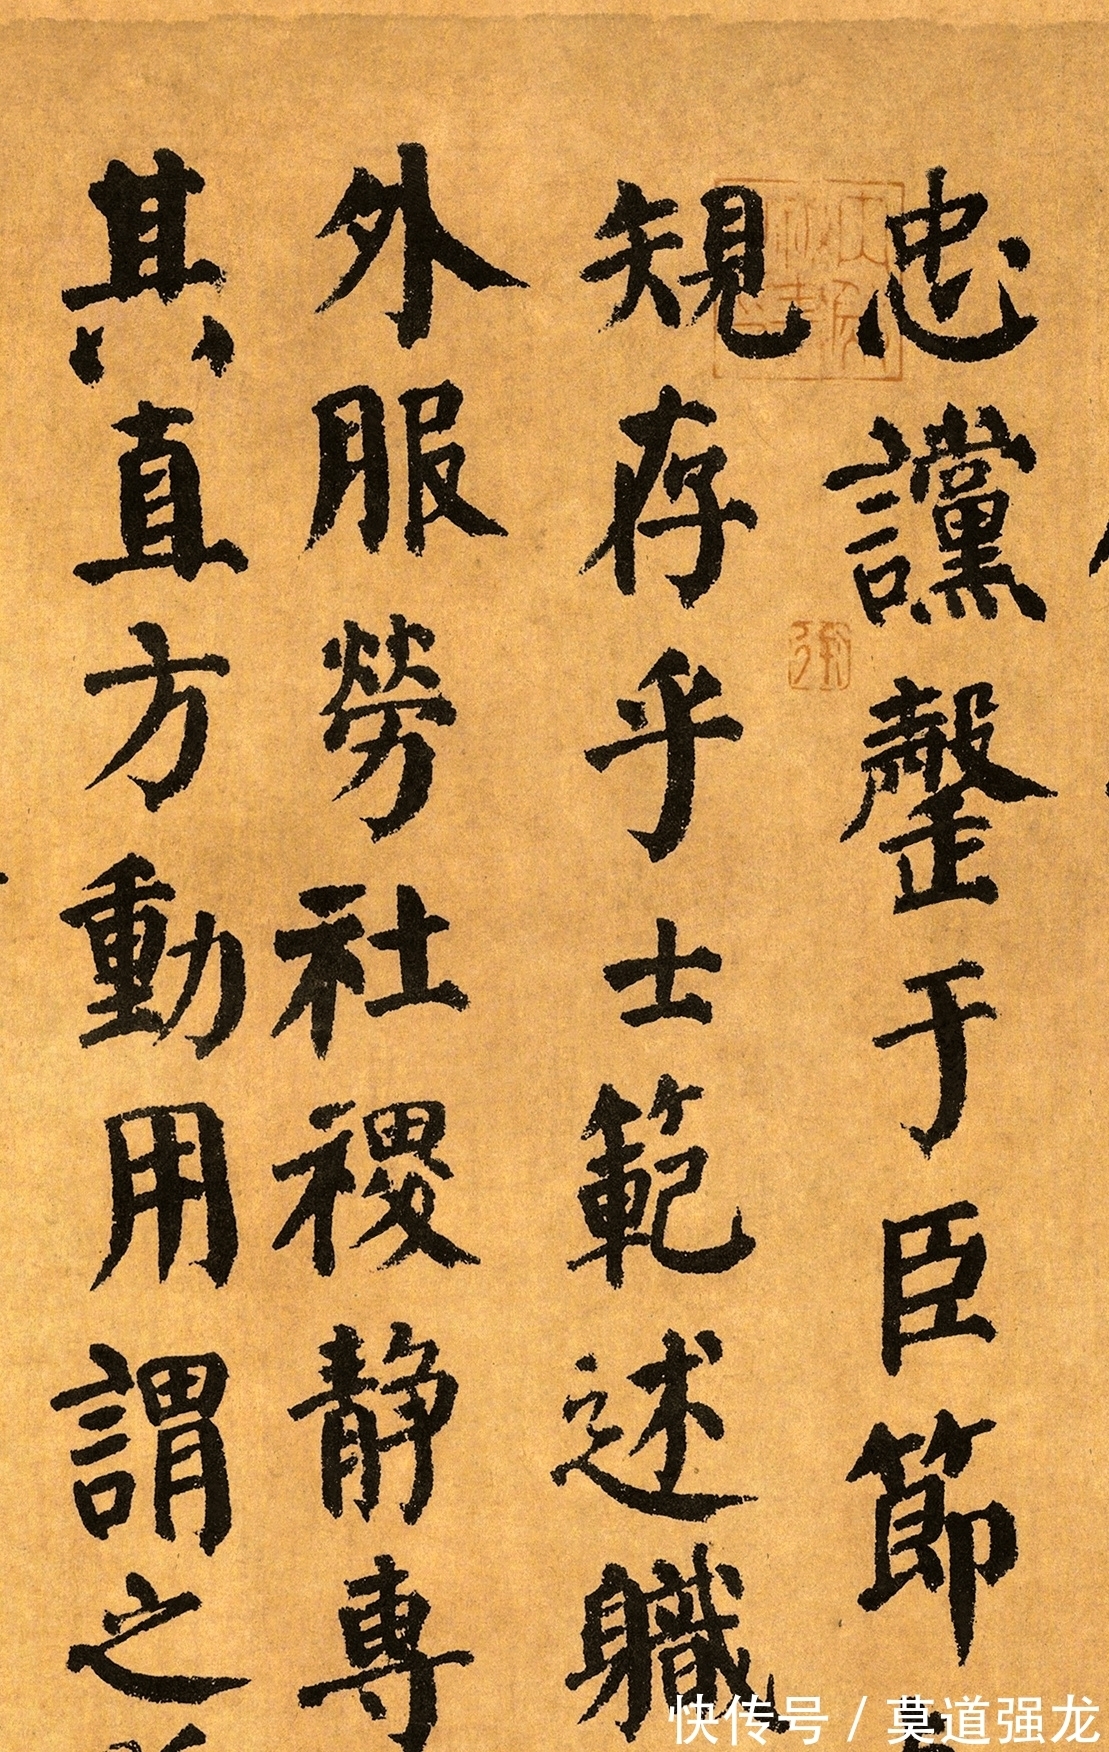 忠讜罄于臣節
規存乎士範述職
外服勞社稷靜專
其直方動用謂之
快传号 / 莫道强龙